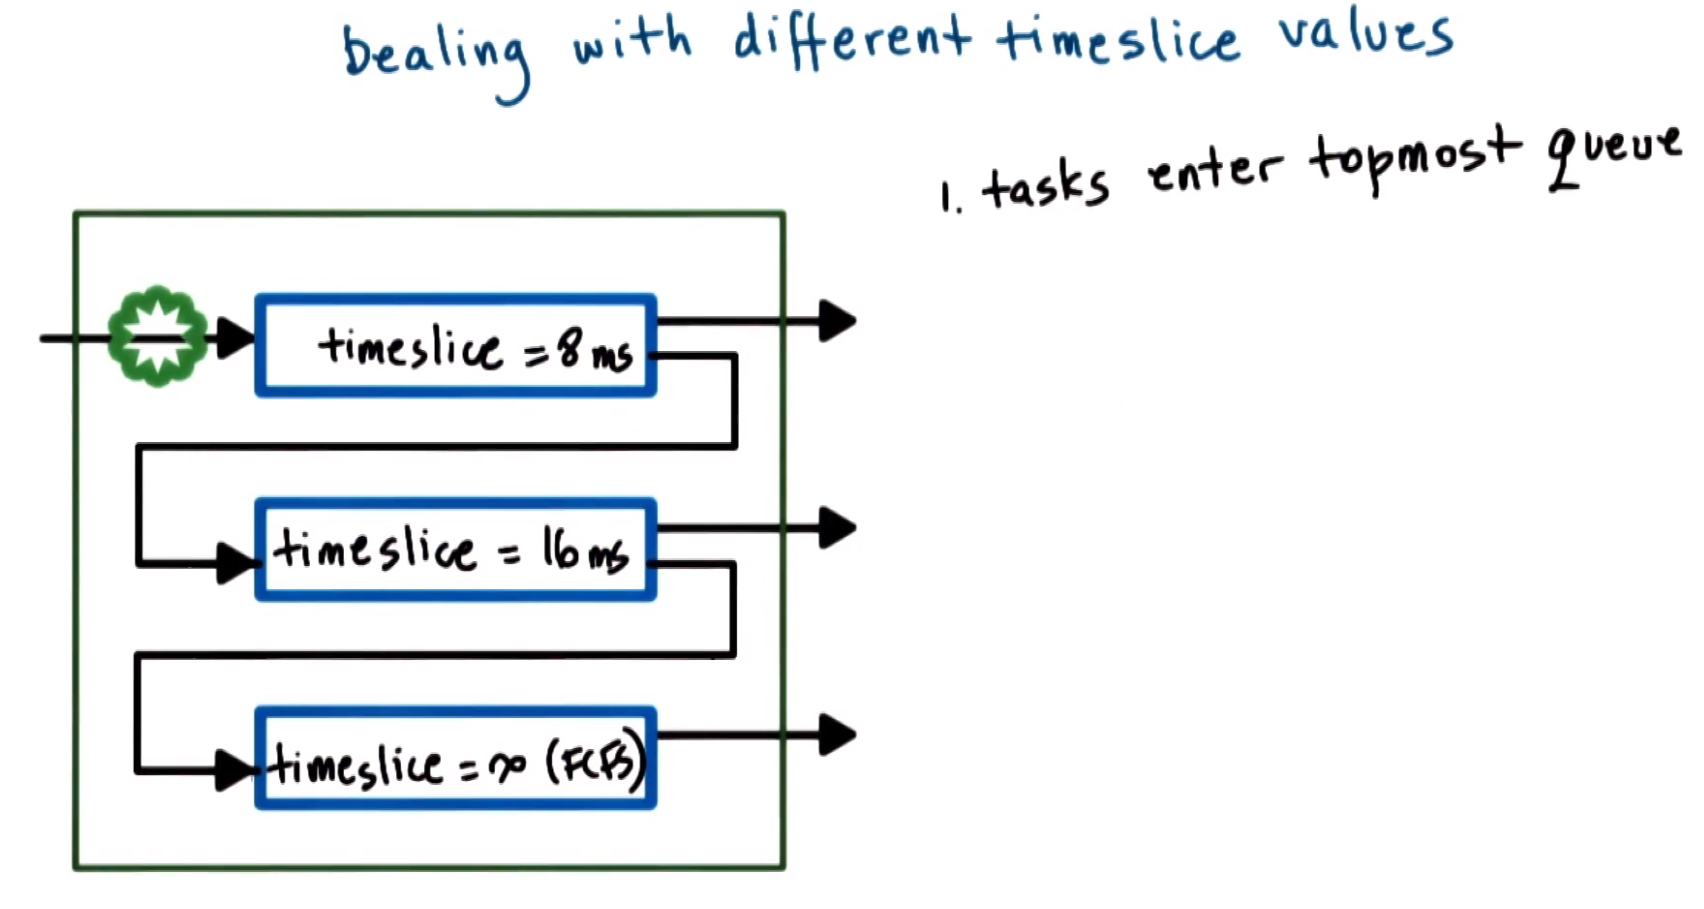 Dealing with different timeslice values
1. tasks enter topmost queue
timeslice = 8 ms
timeslice = 16 ms
timeslice = ∞ (FCFS)